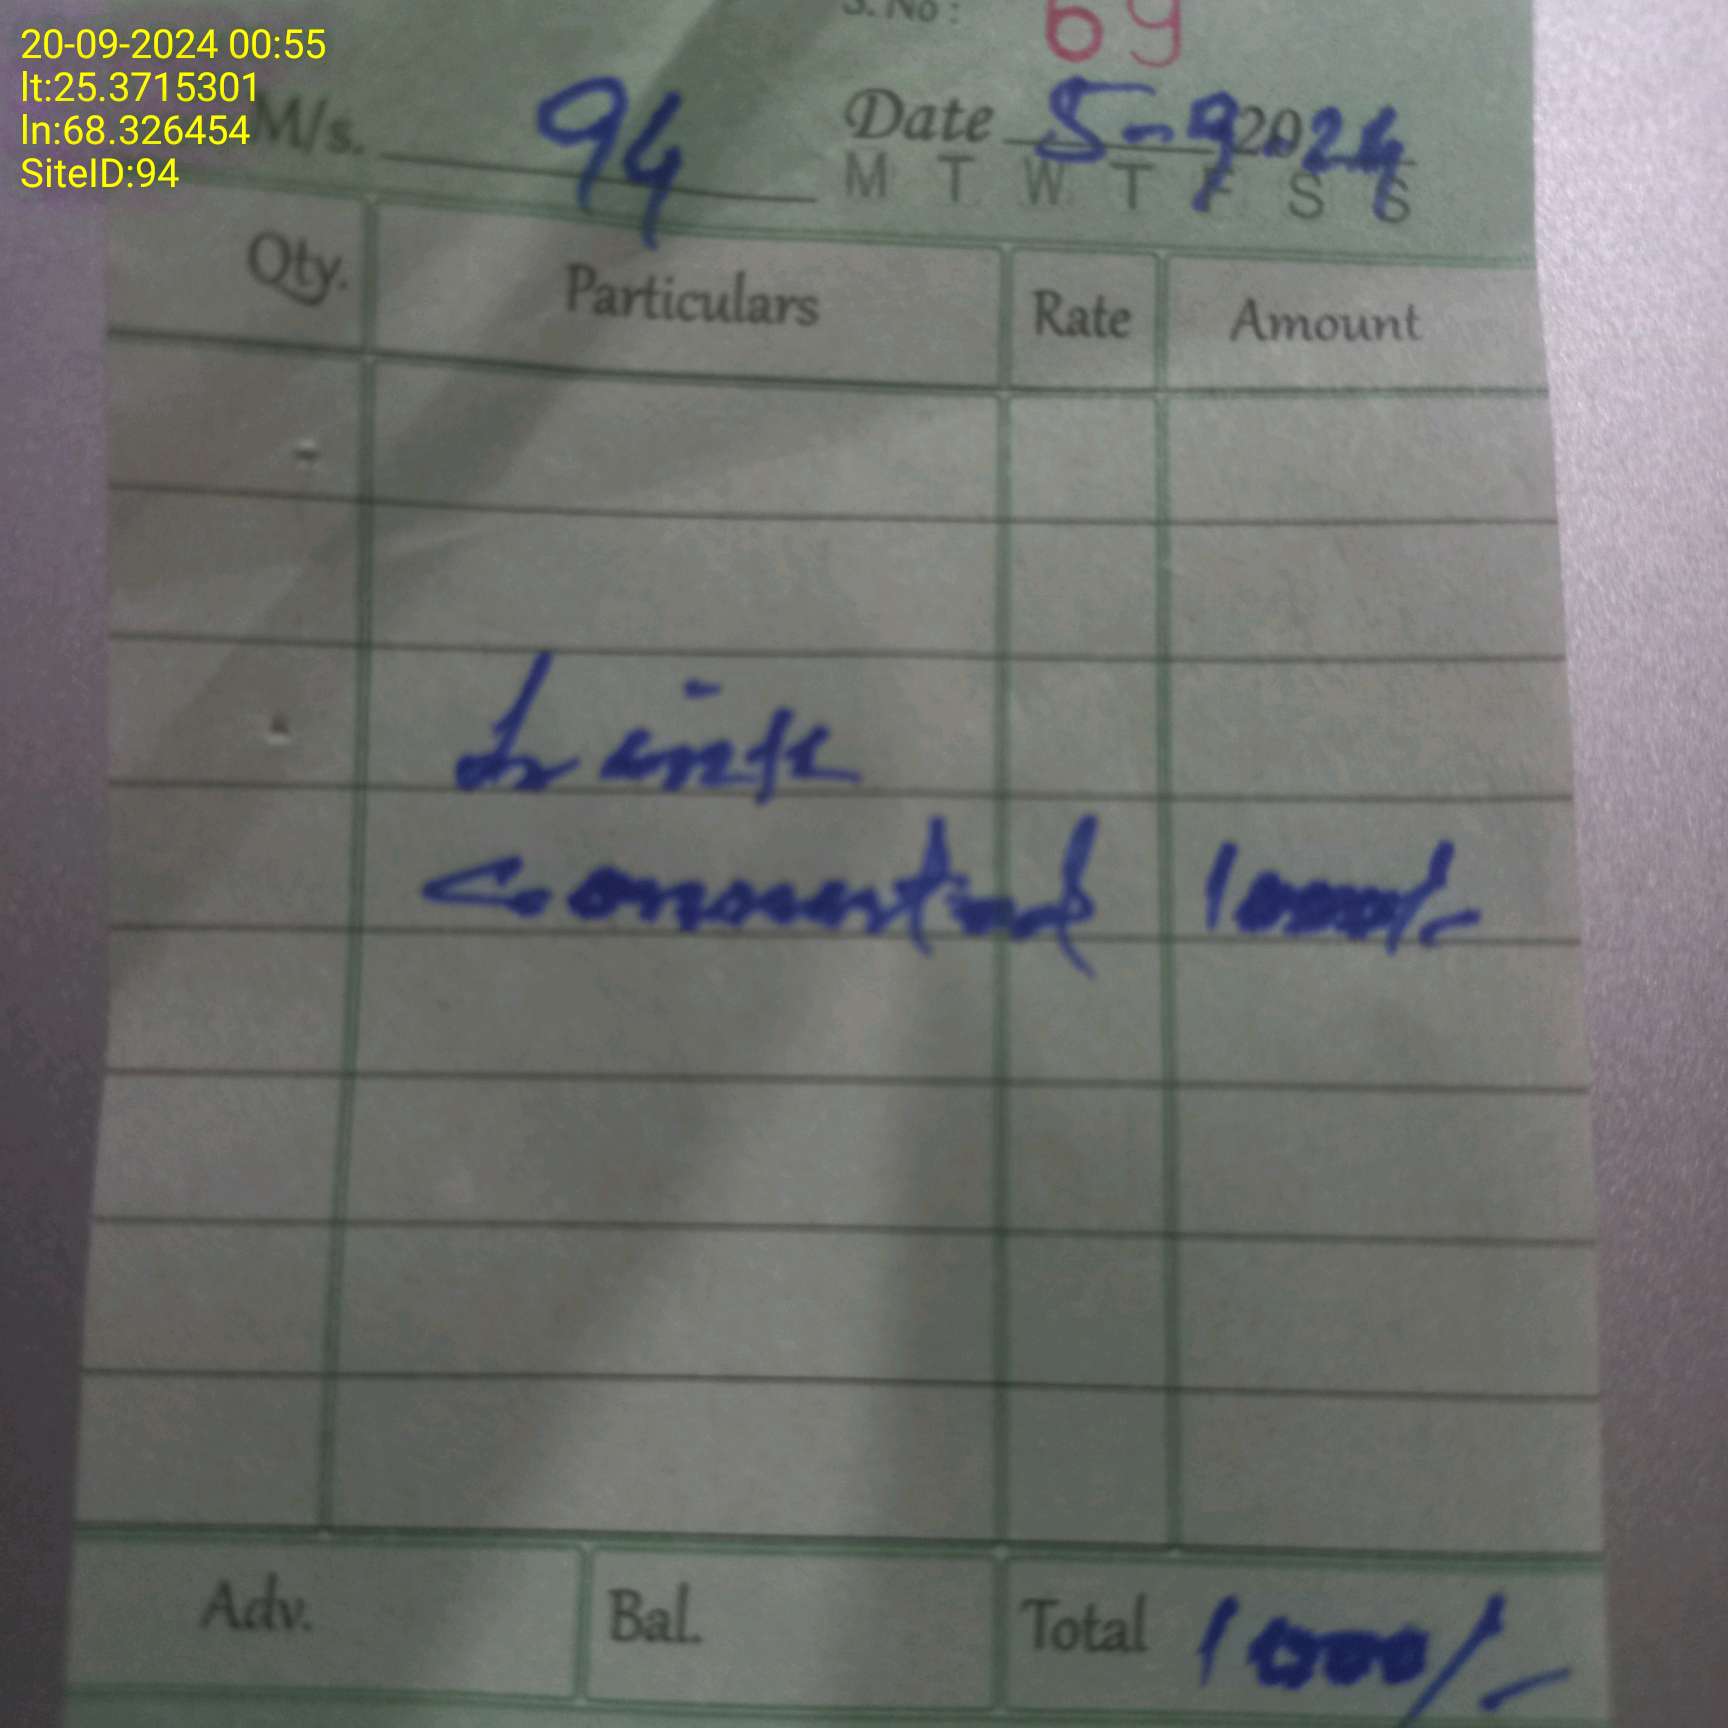 20-09-2024 00:55
lt:25.3715301
ln:68.326454
SiteID:94
S. No: 69
M/s. 94 Date 5-9-2024
M T W T F S S
Qty. Particulars Rate Amount
Link
1000/-
Adv. Bal. Total 1000/-